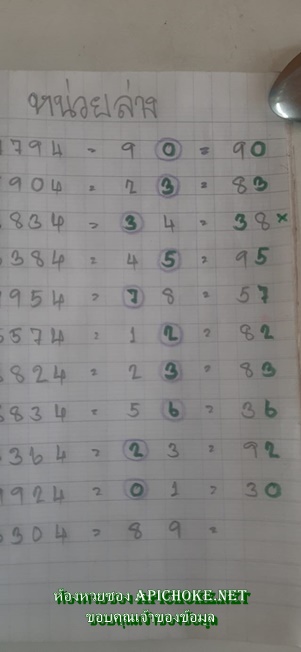 หน่วยล่าง
794 = 9 0 = 90
904 = 2 3 = 83
834 = 3 4 = 38 x
384 = 4 5 = 95
954 = 7 8 = 57
574 = 1 2 = 82
824 = 2 3 = 83
834 = 5 6 = 36
364 = 2 3 = 92
924 = 0 1 = 30
304 = 8 9 =
ห้องหวยซอง APICHOKE.NET
ขอบคุณเจ้าของข้อมูล